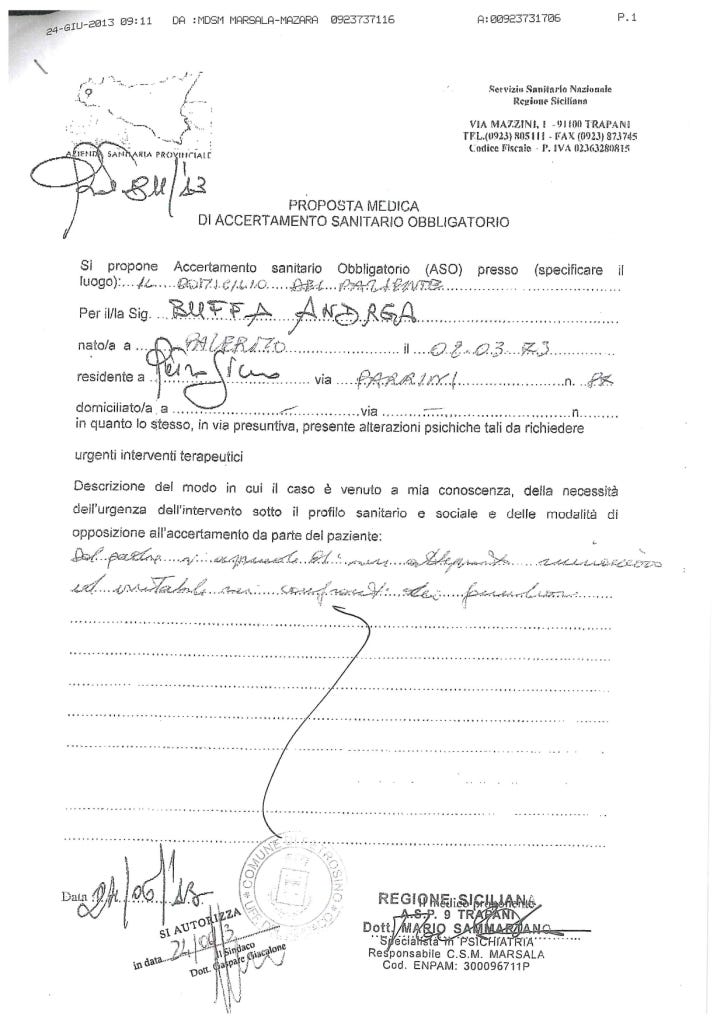 24-GIU-2013 09:11 DA :MDSM MARSALA-MAZARA 0923737116 A:00923731706 P.1
Servizio Sanitario Nazionale
Regione Siciliana
VIA MAZZINI, 1 - 91100 TRAPANI
TEL.(0923) 805111 - FAX (0923) 873745
Codice Fiscale - P. IVA 02363280815
AZIENDA SANITARIA PROVINCIALE
PROPOSTA MEDICA
DI ACCERTAMENTO SANITARIO OBBLIGATORIO
Si propone Accertamento sanitario Obbligatorio (ASO) presso (specificare il
luogo): IL DOMICILIO DEL PAZIENTE
Per il/la Sig. BUFFA ANDREA
nato/a a PALERMO il 02.03.73
residente a via PARRINI n.
domiciliato/a a – via – n.
in quanto lo stesso, in via presuntiva, presente alterazioni psichiche tali da richiedere
urgenti interventi terapeutici
Descrizione del modo in cui il caso è venuto a mia conoscenza, della necessità
dell'urgenza dell'intervento sotto il profilo sanitario e sociale e delle modalità di
opposizione all'accertamento da parte del paziente:
Dal padre si apprende di un atteggiamento minaccioso
ed irritabile nei confronti dei familiari
Data 24/06/13
COMUNE DI PETROSINO
SI AUTORIZZA
in data 24/06/13
Il Sindaco
Dott. Gaspare Giacalone
REGIONE SICILIANA
Il Medico proponente
A.S.P. 9 TRAPANI
Dott. MARIO SAMMARTANO
Specialista in PSICHIATRIA
Responsabile C.S.M. MARSALA
Cod. ENPAM: 300096711P